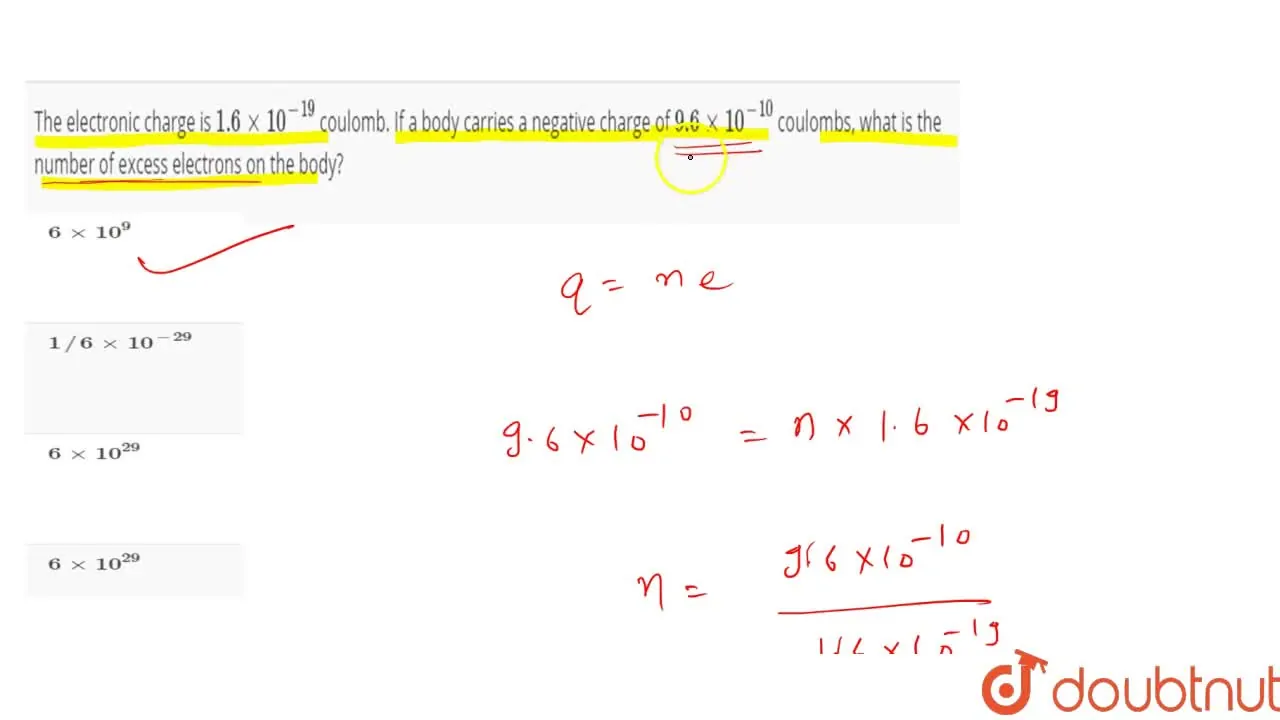 The electronic charge is 1.6 × 10⁻¹⁹ coulomb. If a body carries a negative charge of 9.6 × 10⁻¹⁰ coulombs, what is the
number of excess electrons on the body?
6 × 10⁹
q = n e
1/6 × 10⁻²⁹
9.6 × 10⁻¹⁰ = n × 1.6 × 10⁻¹⁹
6 × 10²⁹
6 × 10²⁹
n = 9.6 × 10⁻¹⁰
1.6 × 10⁻¹⁹
doubtnut